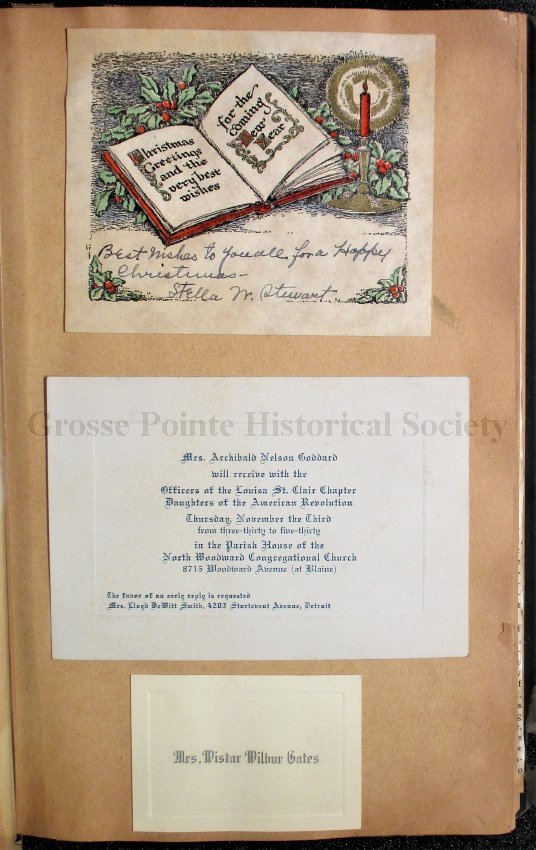 Christmas
Greetings
and the
very best
wishes
for the
coming
New
Year
Best Wishes to you all for a Happy
Christmas-
Stella W. Stewart
Grosse Pointe Historical Society
Mrs. Archibald Nelson Goddard
will receive with the
Officers of the Louisa St. Clair Chapter
Daughters of the American Revolution
Thursday, November the Third
from three-thirty to five-thirty
in the Parish House of the
North Woodward Congregational Church
8715 Woodward Avenue (at Blaine)
The favor of an early reply is requested
Mrs. Lloyd DeWitt Smith, 4203 Sturtevant Avenue, Detroit
Mrs. Wistar Wilbur Gates